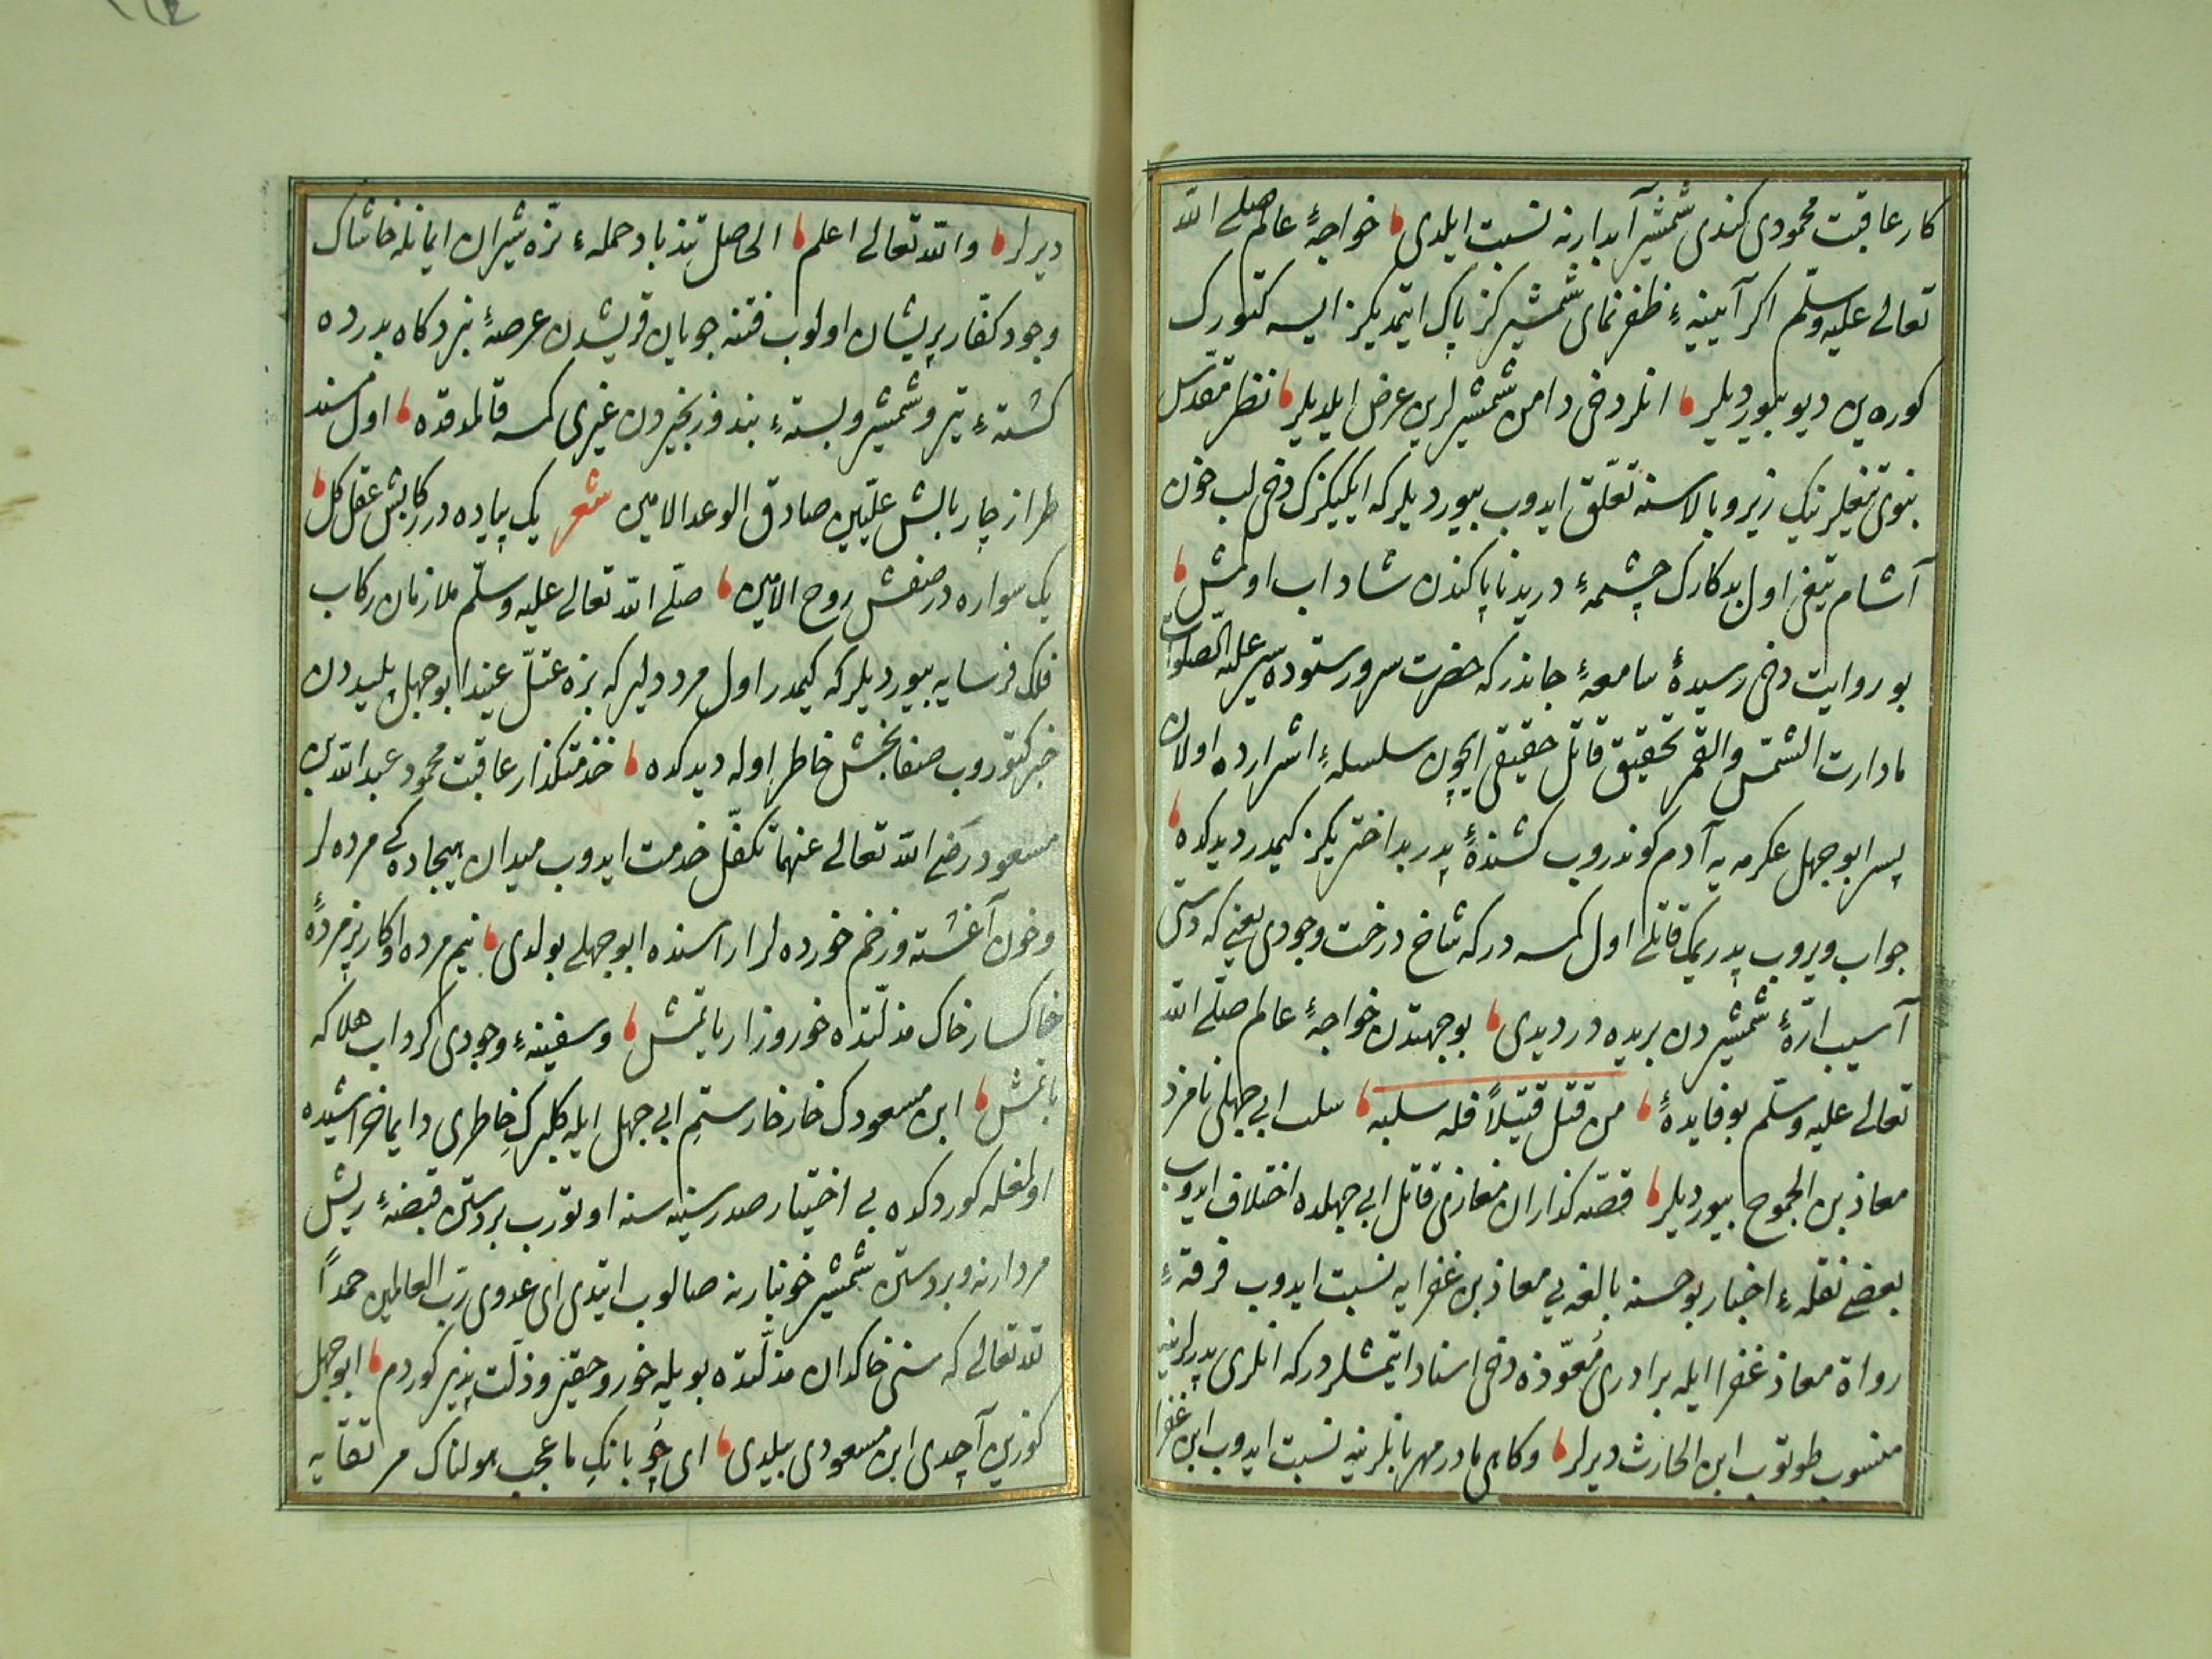 كار عاقبت محمودى كندى شمشير آبدارينه نسبت ايلدى خواجهٔ عالم صلى الله
تعالى عليه وسلّم اكر آيينهٔ ظفرنماى شمشيركز پاك ايتمديكز ايسه كتورك
كوره‌ين ديو بيورديلر انلر دخى دامن شمشيرلرين عرض ايلديلر نظر مقدّس
نبوى تيغلرينك زير و بالاسنه تعلّق ايدوب بيورديلر كه ايكيكزك دخى لب خون
آشام تيغى اول بدكارك چشمهٔ دريد ناپاكندن شاداب اولمش
بو روايت دخى رسيدهٔ سامعهٔ جاندر كه حضرت سرور ستوده سير عليه الصلوات
مادارت الشمس والقمر تحقيق قاتل حقيقى ايچون سلسلهٔ اشرارده اولان
پسر ابوجهل عكرمه يه آدم كوندروب كشندهٔ پدر بداختريكز كيمدر ديدكده
جواب ويروب پدريمك قاتلى اول كمسه در كه شاخ درخت وجودى يعنى كه دستى
آسيب ارّهٔ شمشيردن بريده در ديدى بو جهتدن خواجهٔ عالم صلّى الله
تعالى عليه وسلّم بو فايدهٔ من قتل قتيلاً فله سلبه سلب ابى جهلى نامزد
معاذ بن الجموح بيورديلر قصّه كذاران مغازى قاتل ابى جهلده اختلاف ايدوب
بعضى نقلهٔ اخبار بو حسنه بالغه يى معاذ بن عفرايه نسبت ايدوب فرقهٔ
رواة معاذ عفرا ايله برادرى معوّذه دخى اسناد ايتمشلردر كه انلرى پدرلرينه
منسوب طوتوب ابن الحارث ديرلر وكاهى مادر مهربانلرينه نسبت ايدوب ابن عفرا
ديرلر والله تعالى اعلم الحاصل تندباد حملهٔ نرّه شيران ايمانله خاشاك
وجود كفّار پريشان اولوب فتنه جويان قريشدن عرصهٔ نبردكاه بدرده
كشتهٔ تير و شمشير و بستهٔ بند و زنجيردن غيرى كمسه قالمدقده اول مسند
طراز چار بالش علّيين صادق الوعد الامين شعر يك پياده در ركابش عقل كل
يك سواره در صفش روح الامين صلّى الله تعالى عليه وسلّم ملازمان ركاب
فلك فرسايه بيورديلر كه كيمدر اول مرد دلير كه بزه عتلّ عنيد ابوجهل پليددن
خبر كتوروب صفابخش خاطر اوله ديدكده خدمتكذار عاقبت محمود عبد الله بن
مسعود رضى الله تعالى عنهما تكفّل خدمت ايدوب ميدان هيجاده كى مرده لر
وخون آغشته و زخم خورده لر اراسنده ابوجهلى بولدى نيم مرده اوكار پژمردهٔ
خاكسار خاك مذلّتده خور و زار ياتمش وسفينهٔ وجودى كرداب هلاكه
باتمش ابن مسعودك خار خار ستم ابى جهل ايله كلبرك خاطرى دايما خراشيده
اولمغله كوردكده بى اختيار صدر سينه سنه اوتورب بر دستن قبضهٔ ريش
مردارنه و بر دستن شمشير خونبارنه صالوب ايتدى اى عدوى ربّ العالمين حمداً
لله تعالى كه سنى خاكدان مذلّتده بويله خور و حقير و ذلّت پذير كوردم ابوجهل
كوزين آچدى ابن مسعودى بيلدى اى چوبانك ما عجب هولناك مرتقايه